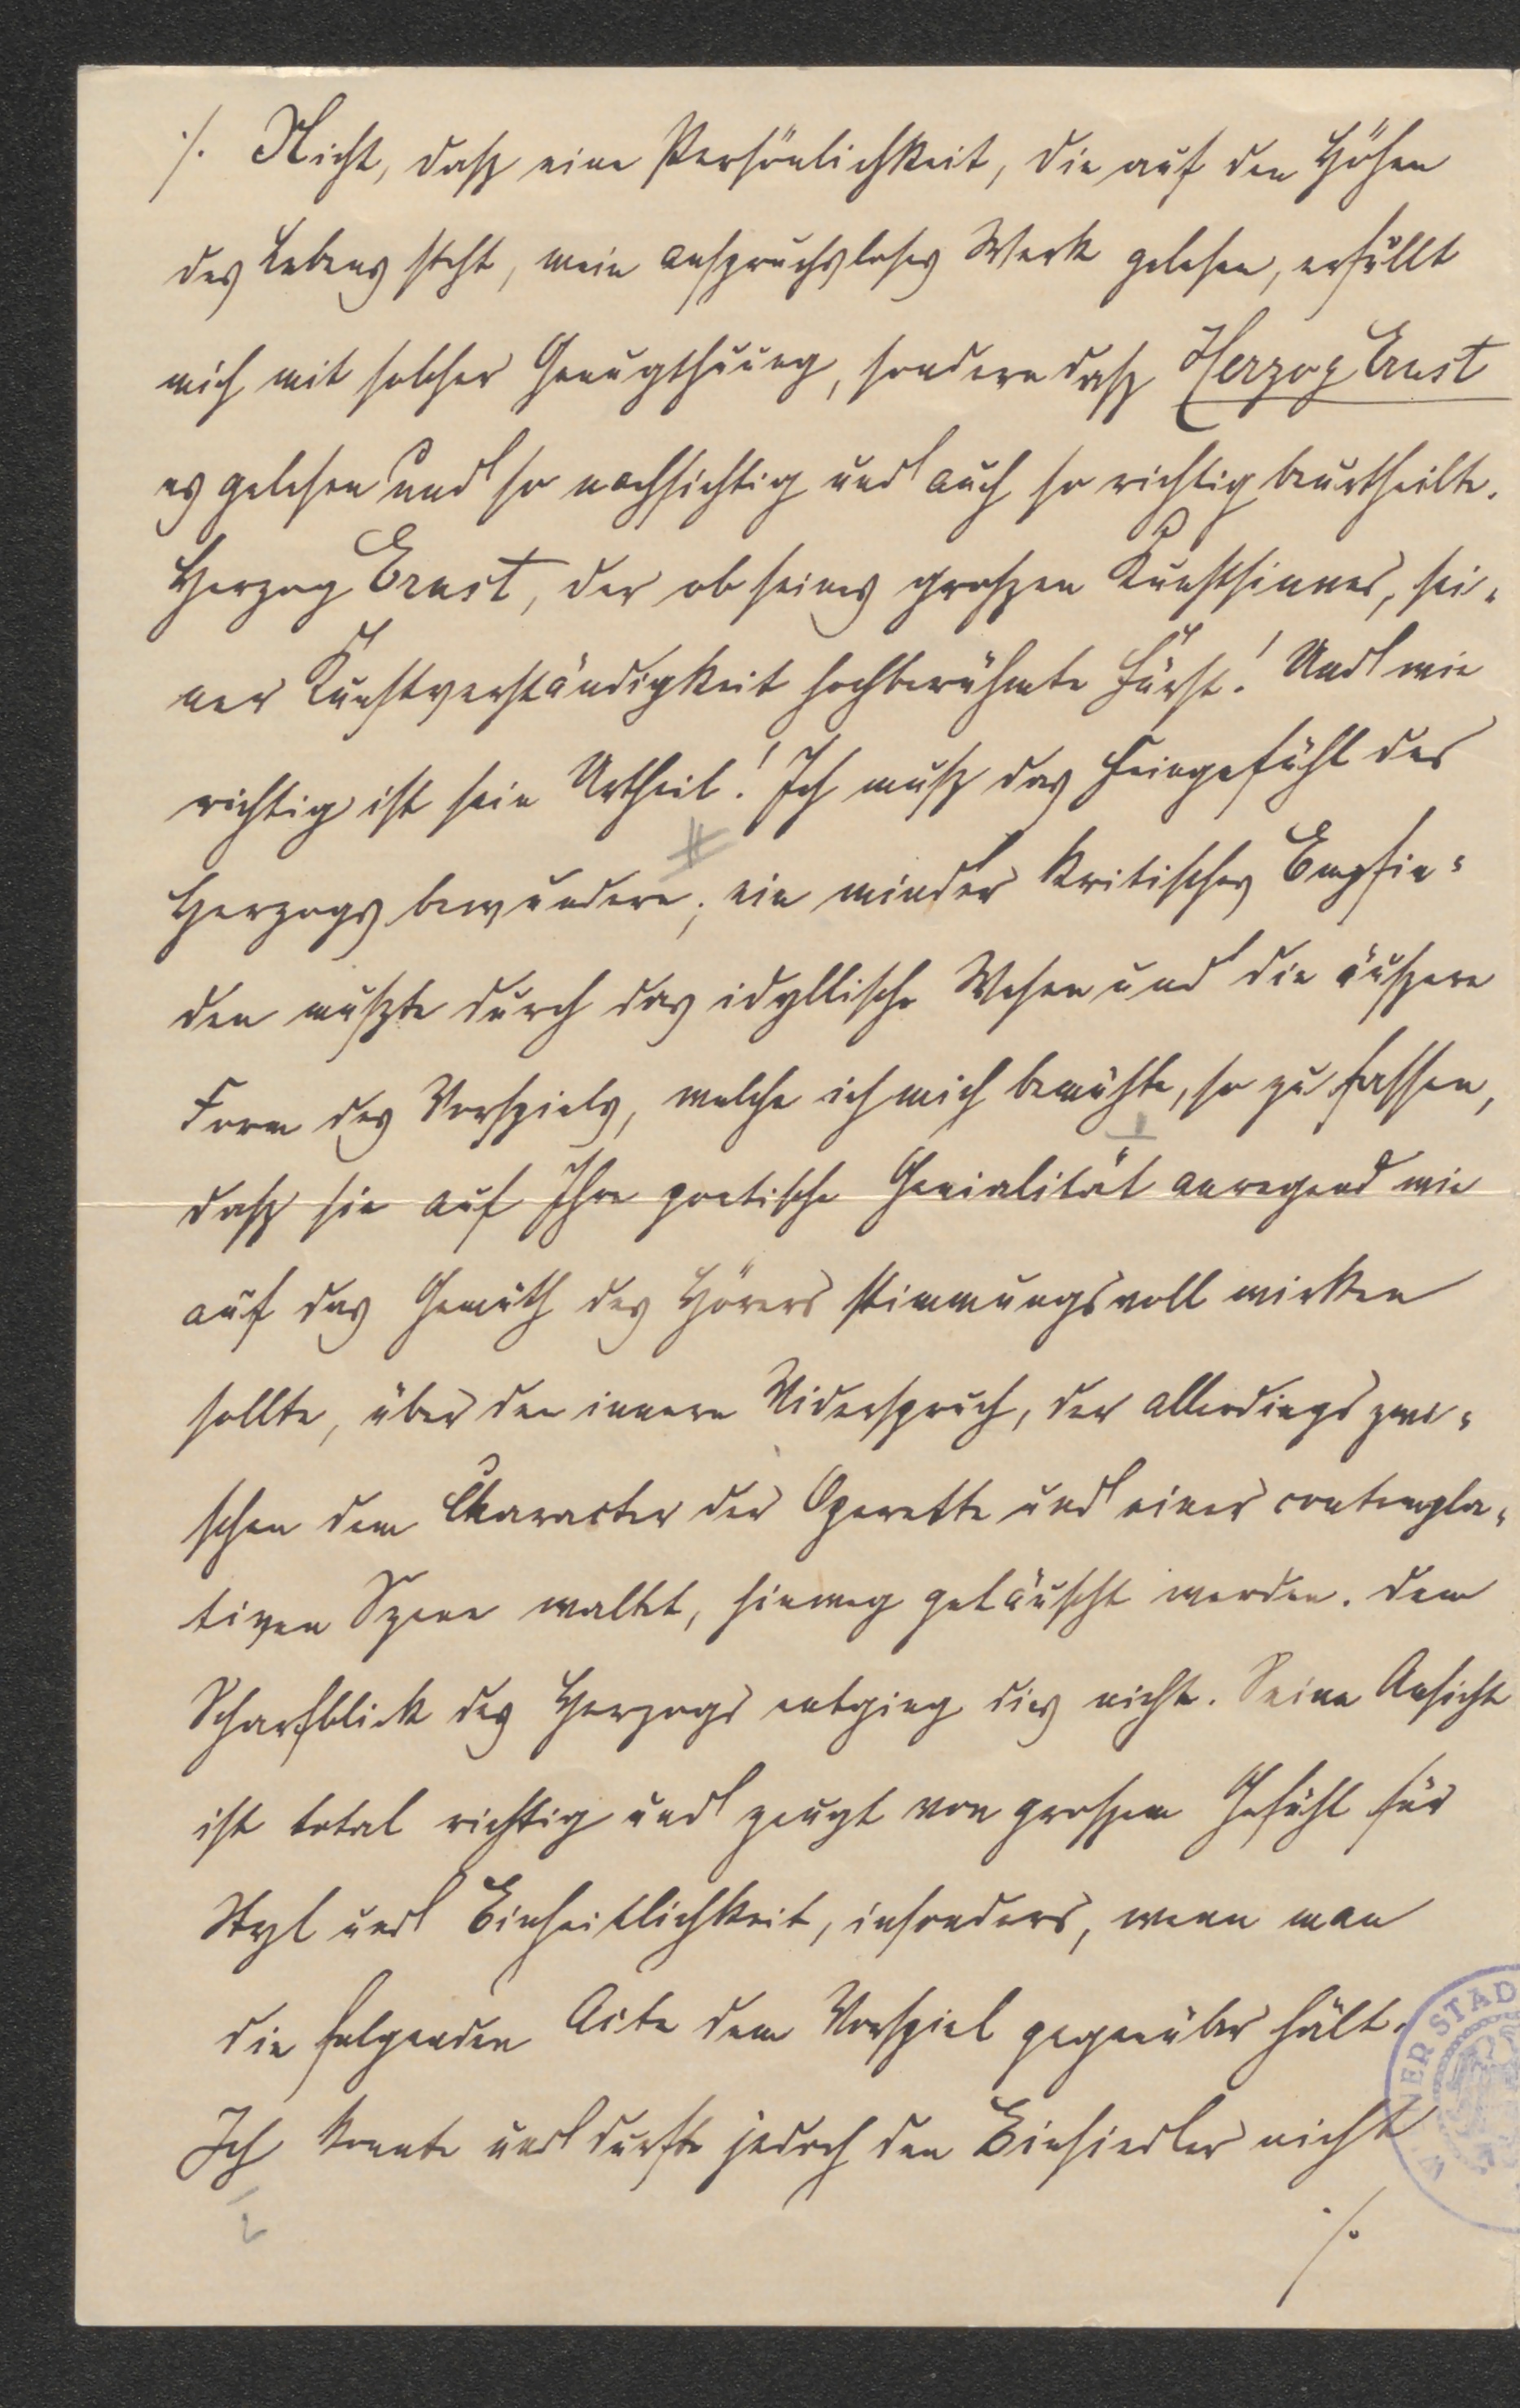 ./. Nicht, dasz eine Persönlichkeit, die auf den Höhen
des Lebens steht, mein anspruchsloses Werk gelesen, erfüllt
mich mit solcher Genugthuung, sondern dasz Herzog Ernst
es gelesen und so nachsichtig und auch so richtig beurtheilte.
Herzog Ernst, der ob seines groszen Kunstsinnes, sei-
ner Kunstverständigkeit hochberühmte Fürst! Und wie
richtig ist sein Urtheil! Ich musz das Feingefühl des
Herzogs bewundern; ein minder kritisches Empfin-
den muszte durch das idyllische Wesen und die äuszere
Form des Vorspiels, welche ich mich bemühte, so zu fassen,
dasz sie auf Ihre poetische Genialität anregend wie
auf das Gemüth des Hörers stimmungsvoll wirken
sollte, über den innern Widerspruch, der allerdings zwi-
schen dem Character der Operette und einer contempla-
tiven Szene waltet, hinweg getäuscht werden. Dem
Scharfblick des Herzogs entging dies nicht. Seine Ansicht
ist total richtig und zeugt von groszem Gefühl für
Styl und Einheitlichkeit, insonders, wenn man
die folgenden Acte dem Vorspiel gegenüber hält.
Ich konnte und durfte jedoch den Einsiedler nicht
./.